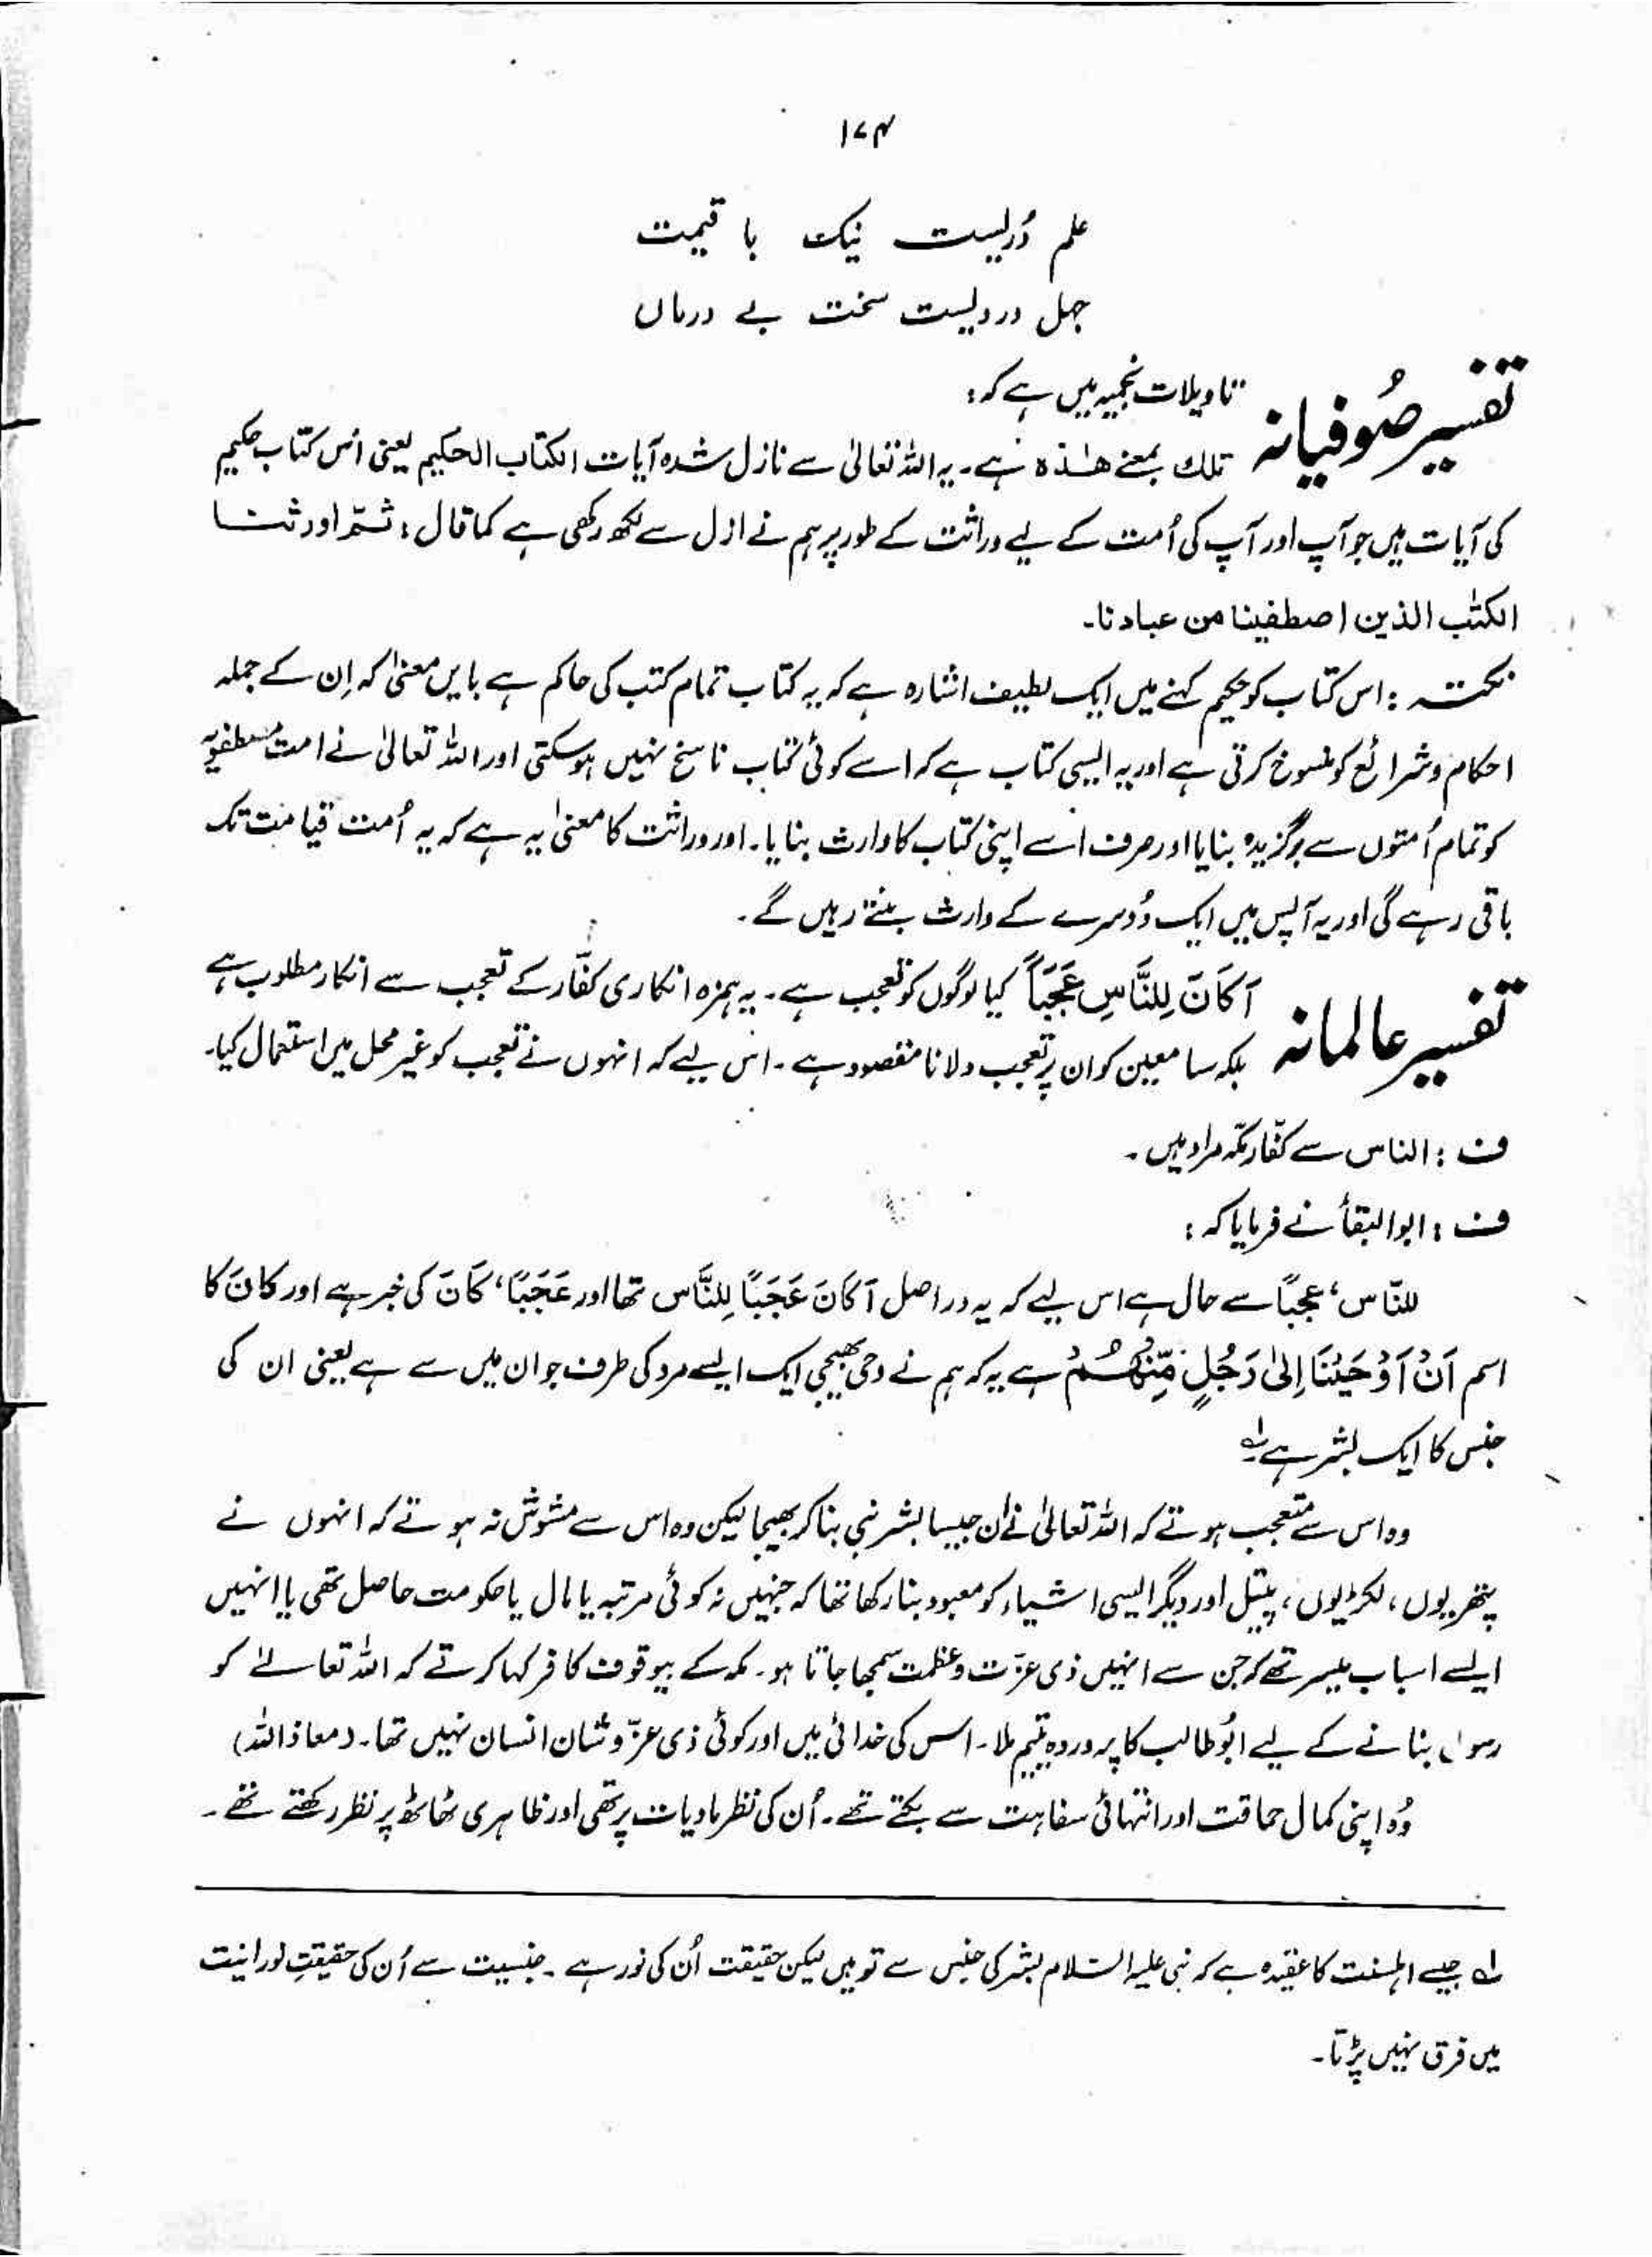 ۱۷۴
علم دُرلیست نیک با قیمت
جہل دردیست سخت بے درماں
تفسیر صُوفیانہ
تاویلات نجمیہ میں ہے کہ:
تلک بمعنے ھٰذہ ہے۔ یہ اللہ تعالیٰ سے نازل شدہ آیات الکتاب الحکیم یعنی اُس کتاب حکیم
کی آیات ہیں جو آپ اور آپ کی اُمت کے لیے وراثت کے طور پر ہم نے ازل سے لکھ رکھی ہے کما قال: ثمّ اورثنا
الکتٰب الذین اصطفینا من عبادنا۔
نکتہ: اس کتاب کو حکیم کہنے میں ایک لطیف اشارہ ہے کہ یہ کتاب تمام کتب کی حاکم ہے بایں معنیٰ کہ اِن کے جملہ
احکام و شرائع کو منسوخ کرتی ہے اور یہ ایسی کتاب ہے کہ اسے کوئی کتاب ناسخ نہیں ہوسکتی اور اللہ تعالیٰ نے امت مصطفویہ
کو تمام اُمتوں سے برگزیدہ بنایا اور صرف اسے اپنی کتاب کا وارث بنایا۔ اور وراثت کا معنیٰ یہ ہے کہ یہ اُمت قیامت تک
باقی رہے گی اور یہ آپس میں ایک دُوسرے کے وارث بنتے رہیں گے۔
تفسیر عالمانہ
اَکَانَ لِلنَّاسِ عَجَبًا کیا لوگوں کو تعجب ہے۔ یہ ہمزہ انکاری کفّار کے تعجب سے انکار مطلوب ہے
بلکہ سامعین کو ان پر تعجب دلانا مقصود ہے۔ اس لیے کہ انہوں نے تعجب کو غیر محل میں استعمال کیا۔
ف: الناس سے کفّار مکّہ مراد ہیں۔
ف: ابوالبقأ نے فرمایا کہ:
للنّاس، عجبًا سے حال ہے اس لیے کہ یہ دراصل اَکَانَ عَجَبًا لِلنَّاس تھا اور عَجَبًا، کَانَ کی خبر ہے اور کانَ کا
اسم اَنْ اَوْحَیْنَا اِلیٰ رَجُلٍ مِّنْهُمْ ہے یہ کہ ہم نے وحی بھیجی ایک ایسے مرد کی طرف جو ان میں سے ہے یعنی ان کی
جنس کا ایک بشر ہے لہ
وہ اس سے متعجب ہوتے کہ اللہ تعالیٰ نے ان جیسا بشر نبی بنا کر بھیجا لیکن وہ اس سے مشوش نہ ہوتے کہ انہوں نے
پتھریوں، لکڑیوں، پیتل اور دیگر ایسی اشیاء کو معبود بنا رکھا تھا کہ جنہیں نہ کوئی مرتبہ یا مال یا حکومت حاصل تھی یا انہیں
ایسے اسباب میسر تھے کہ جن سے انہیں ذی عزّت و عظمت سمجھا جاتا ہو۔ مکہ کے بیوقوف کافر کہا کرتے کہ اللہ تعالےٰ کو
رسول بنانے کے لیے ابُوطالب کا پروردہ یتیم ملا۔ اس کی خدائی میں اور کوئی ذی عزّ و شان انسان نہیں تھا۔ (معاذ اللہ)
وُہ اپنی کمال حماقت اور انتہائی سفاہت سے بکتے تھے۔ اُن کی نظر مادیات پر تھی اور ظاہری ٹھاٹھ پر نظر رکھتے تھے۔
لہ جیسے اہلسنت کا عقیدہ ہے کہ نبی علیہ السّلام بشر کی جنس سے تو ہیں لیکن حقیقت اُن کی نور ہے۔ جنسیت سے اُن کی حقیقتِ نورانیت
میں فرق نہیں پڑتا۔